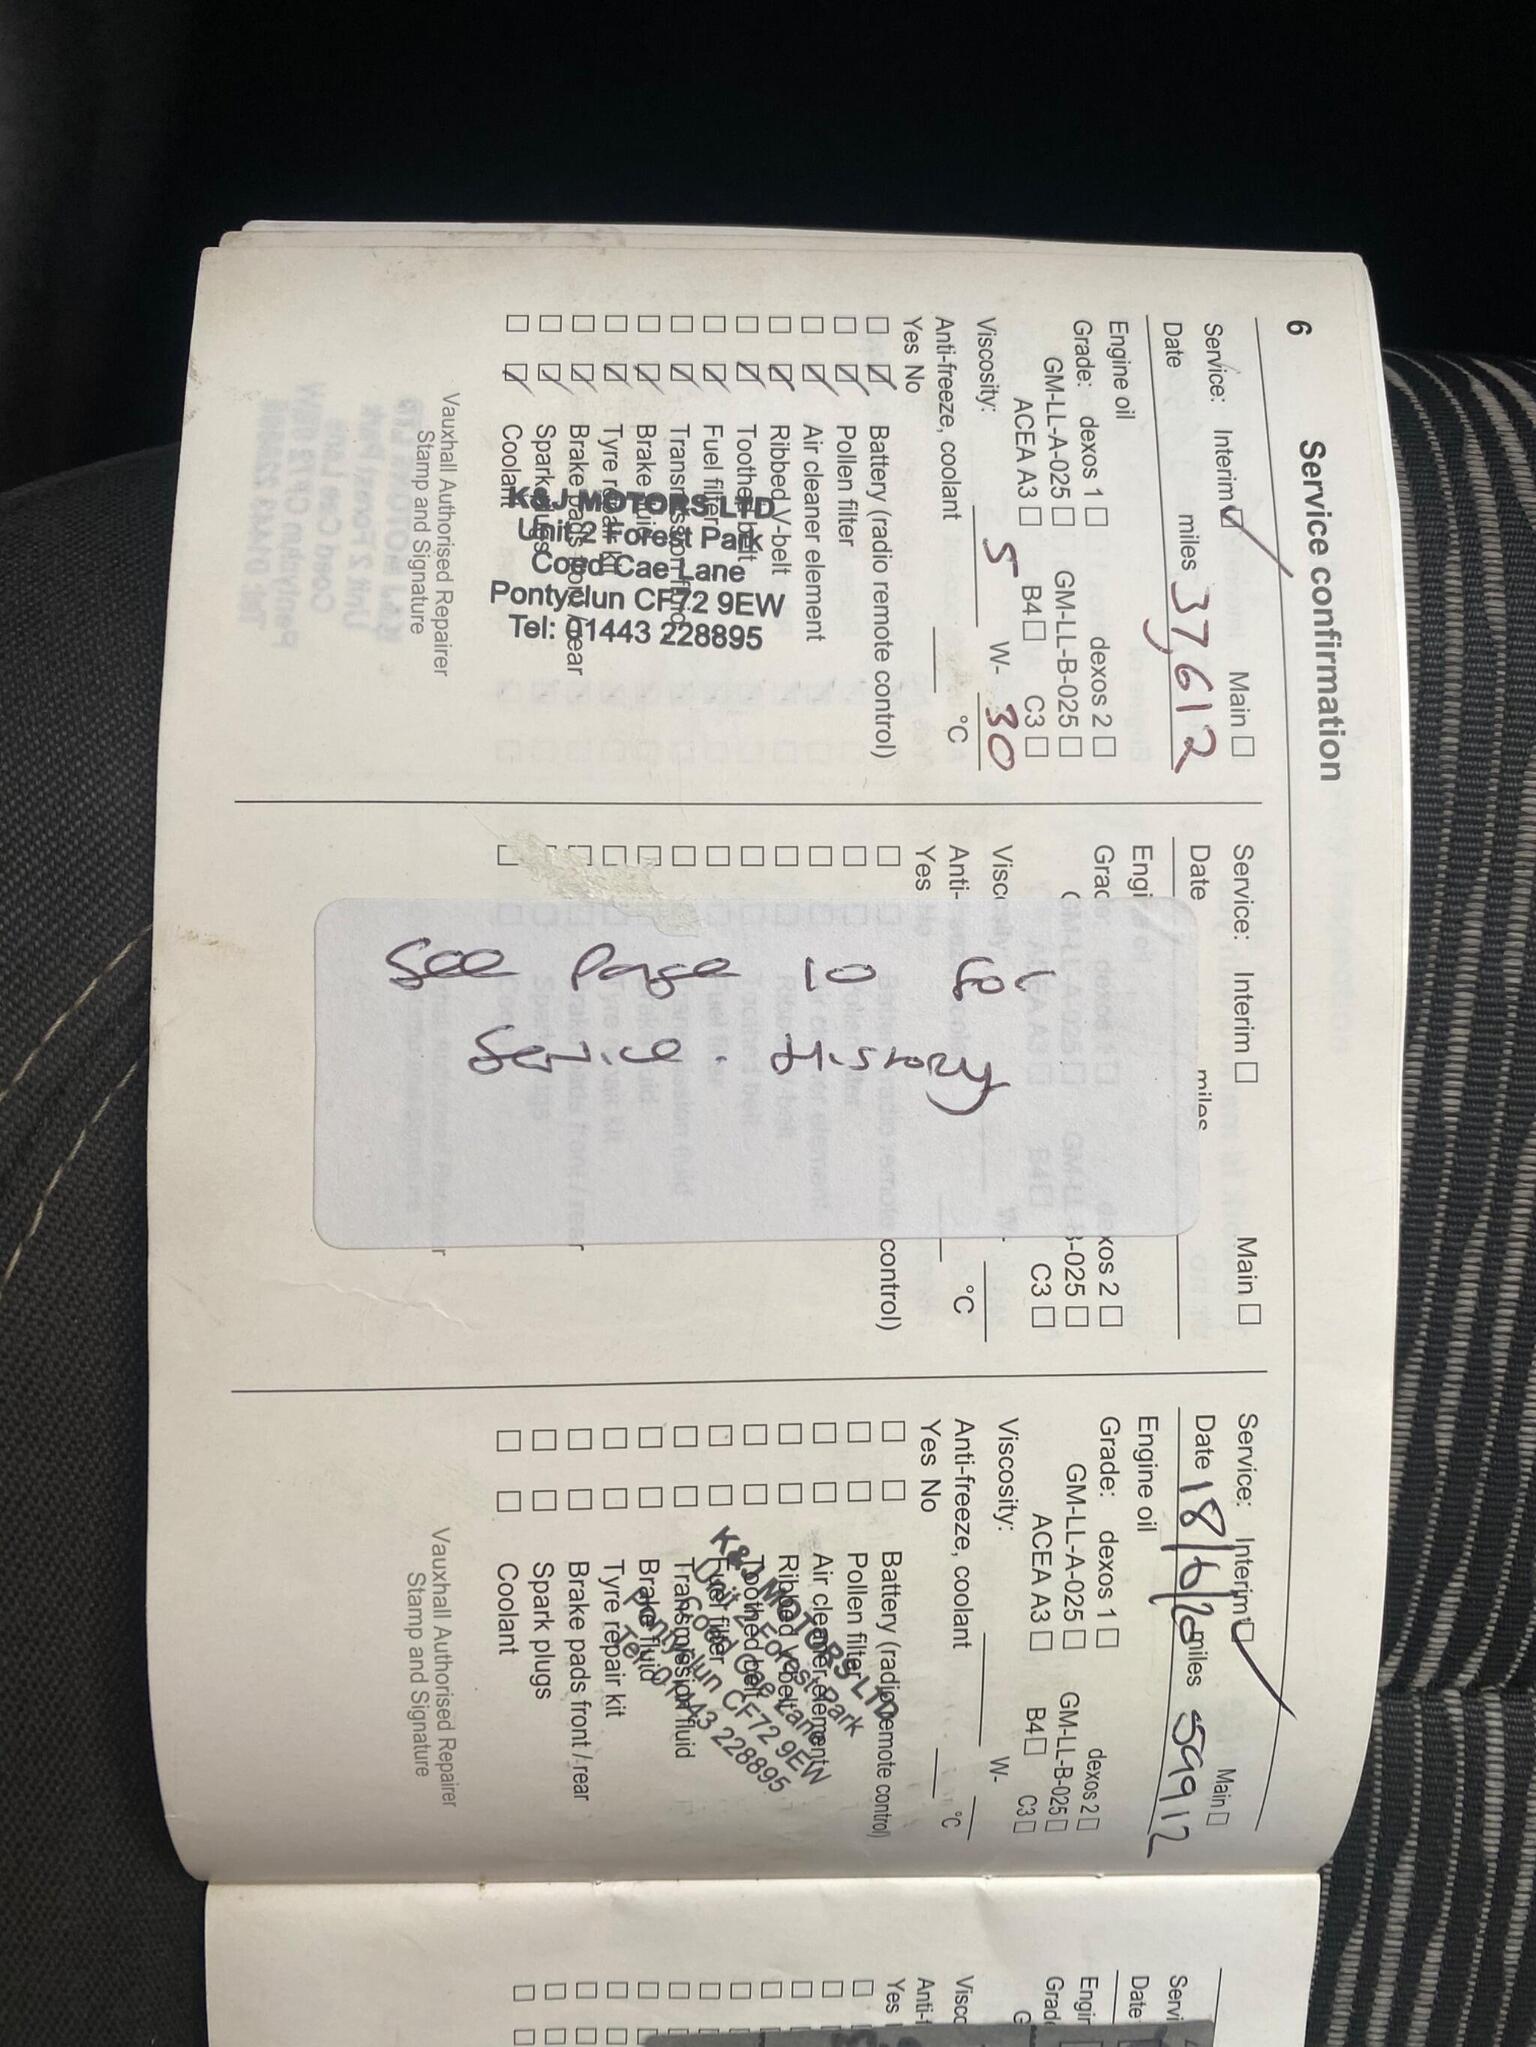 6
Service confirmation
Service: Interim ☑ Main ☐
Date miles 37,612
Engine oil
Grade: dexos 1 ☐ dexos 2 ☐
GM-LL-A-025 ☐ GM-LL-B-025 ☐
ACEA A3 ☐ B4 ☐ C3 ☐
Viscosity: 5 W- 30
Anti-freeze, coolant °C
Yes No
☐ ☑ Battery (radio remote control)
☐ ☑ Pollen filter
☐ ☑ Air cleaner element
☐ ☑ Ribbed V-belt
☐ ☑ Toothed belt
☐ ☑ Fuel filter
☐ ☑ Transmission fluid
☐ ☑ Brake fluid
☐ ☑ Tyre repair kit
☐ ☑ Brake pads front / rear
☐ ☑ Spark plugs
☐ ☑ Coolant
K&J MOTORS LTD
Unit 2 Forest Park
Coed Cae Lane
Pontyclun CF72 9EW
Tel: 01443 228895
Vauxhall Authorised Repairer
Stamp and Signature
Service: Interim ☐ Main ☐
Date miles
Engi
Grade: dexos 1 ☐ dexos 2 ☐
GM-LL-A-025 ☐ GM-LL-B-025 ☐
ACEA A3 ☐ B4 ☐ C3 ☐
Viscosity W-
Anti- °C
Yes No
control)
See page 10
History
Service: Interim ☑ Main ☐
Date 18/6/20 miles 59912
Engine oil
Grade: dexos 1 ☐ dexos 2 ☐
GM-LL-A-025 ☐ GM-LL-B-025 ☐
ACEA A3 ☐ B4 ☐ C3 ☐
Viscosity: W-
Anti-freeze, coolant °C
Yes No
☐ ☐ Battery (radio remote control)
☐ ☐ Pollen filter
☐ ☐ Air cleaner element
☐ ☐ Ribbed V-belt
☐ ☐ Toothed belt
☐ ☐ Fuel filter
☐ ☐ Transmission fluid
☐ ☐ Brake fluid
☐ ☐ Tyre repair kit
☐ ☐ Brake pads front / rear
☐ ☐ Spark plugs
☐ ☐ Coolant
K&J MOTORS LTD
Unit 2 Forest Park
Coed Cae Lane
Pontyclun CF72 9EW
Tel: 01443 228895
Vauxhall Authorised Repairer
Stamp and Signature
Servi
Date
Engin
Grade
G
Visco
Anti-f
Yes